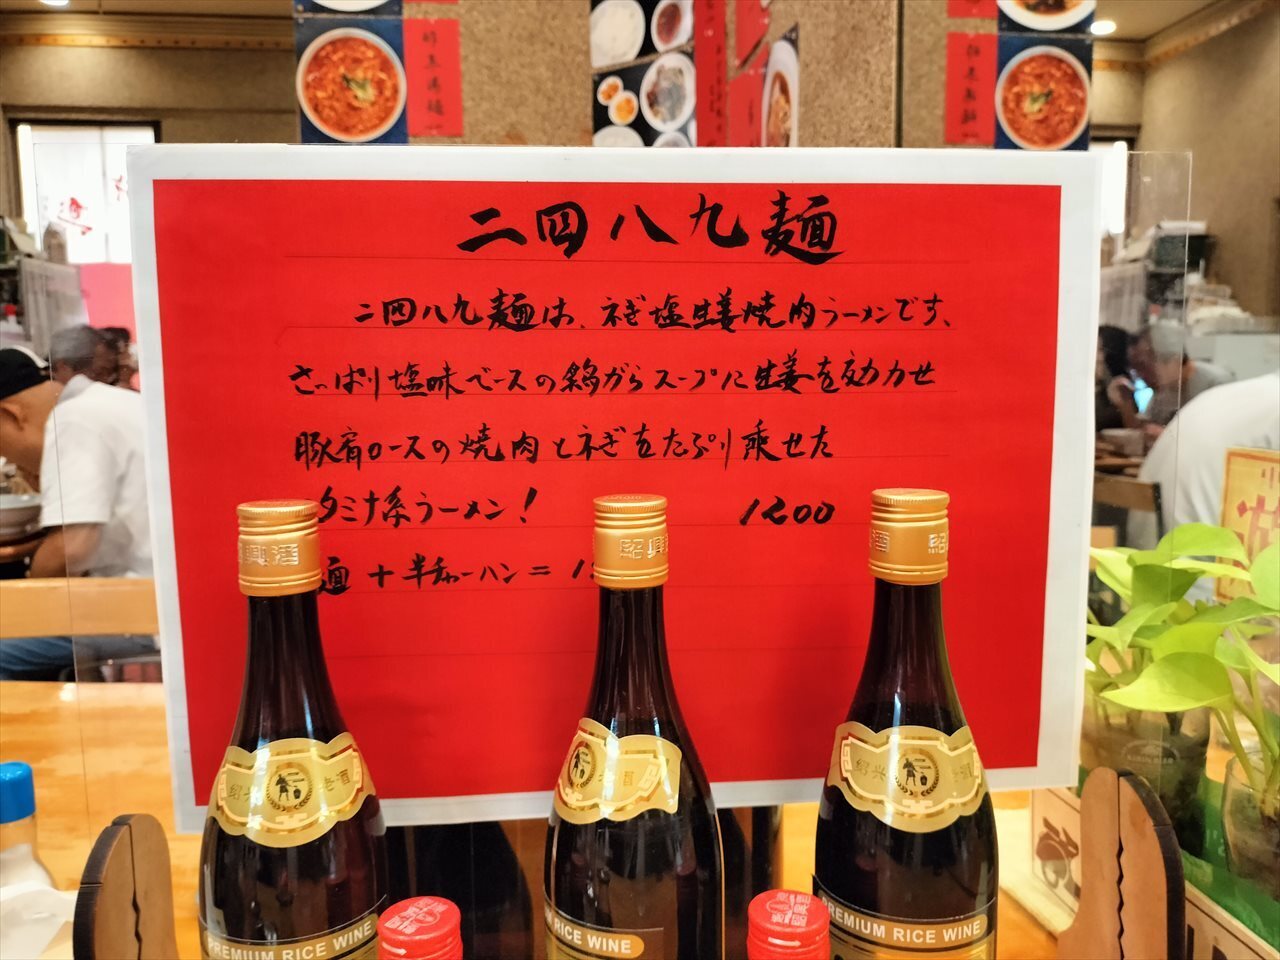 二四八九麺
二四八九麺は、ネギ塩生姜焼肉ラーメンです、
さっぱり塩味ベースの鶏がらスープに生姜を効カせ
豚肩ロースの焼肉とネギをたっぷり乗せた
タミナ系ラーメン! 1200
麺 + 半チャーハン = 1
興酒
紹興
酒
紹
绍兴
老酒
酒
绍兴
PREMIUM RICE WINE
RICE WINE
PREMIUM RICE WINE